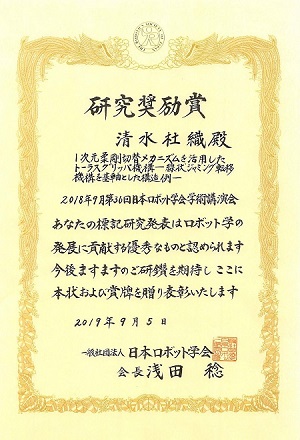 研究奨励賞
清水杜織殿
1次元柔剛切替メカニズムを活用した
トーラスグリッパ機構ー線状ジャミング転移
機構を基軸とした構造例ー
2018年9月第36回日本ロボット学会学術講演会
あなたの標記研究発表はロボット学の
発展に貢献する優秀なものと認められます
今後ますますのご研鑽を期待し ここに
本状および賞牌を贈り表彰いたします
2019年9月5日
一般社団法人 日本ロボット学会
会長 浅田 稔